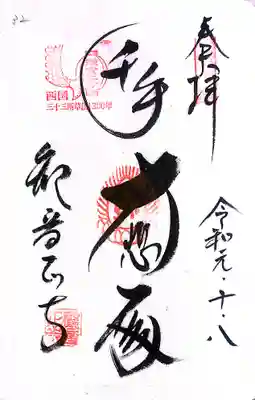 奉拝
令和元・十・八
千手
大悲殿
観音正寺
西国
三十三所草創1300年